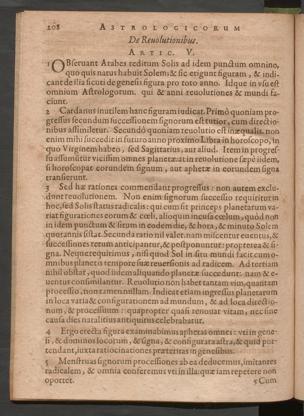 208 ASTROLOGICORUM
De Reuolutionibus.
ARTIC. V.
1 OBseruant Arabes reditum Solis ad idem punctum omnino,
quo quis natus habuit Solem; & sic erigunt figuram, & indi-
cant de illa sicuti de genesi figura pro toto anno. Idque in vsu est
omnium Astrologorum. qui & anni reuolutiones & mundi fa-
ciunt.
2 Cardanus inutilem hanc figuram iudicat. Primò quoniam pro-
gressus secundum successionem signorum est tutior, cum directio-
nibus assimiletur. Secundò quoniam reuolutio est inæqualis. non
enim mihi succedit in futuro anno proximo Libra in horoscopo, in
quo Virginem habeo, sed Sagittarius, aut aliud. Item in progres-
su assumitur vicissim omnes planetæ: at in reuolutione sæpè iidem,
si horoscopat eorundem signum, aut aphetæ in eorundem signa
transeunt.
3 Sed hæ rationes commendant progressus: non autem exclu-
dunt reuolutionem. Non enim signorum successio requiritur in
hoc, sed Solis status radicalis: qui cum sit princeps planetarum va-
riat figurationes eorum & cœli, alioquin incusa cœlum, quod non
in idem punctum & situm in eodem die, & hora, & minuto Solem
quotannis sistat. Secunda ratio nil valet. nam miscentur euentus, &
successiones rerum anticipantur, & postponuntur: propterea & si-
gna. Neque requirimus, nisi quod Sol in situ mundi faciat cum o-
mnibus planetis tempore suæ reuersionis ad radicem. Ad tertiam
nihil obstat, quod iidem aliquando planetæ succedunt: nam & e-
uentus consimilantur. Reuolutio non habet tantam vim, quantam
processio, montamen nullam. Indicet etiam ingressus planetarum
in loca variata & configurationem ad mundum, & ad loca directio-
num, & processuum: quapropter quasi renouat vitam, nec sine
causa dies natalitius antiquitus celebrabatur.
4 Ergo erecta figura examinabimus aphetas omnes: vti in gene-
si, & dominos locorum, & signa, & configurata astra, & quid por-
tendant, iuxta ratiocinationes præteritas in genesibus.
5 Menstruas signorum processiones ab ea deducemus, imitantes
radicalem, & omnia conferemus vti in illa: quæ iam repetere non
oportet. 5 Cum